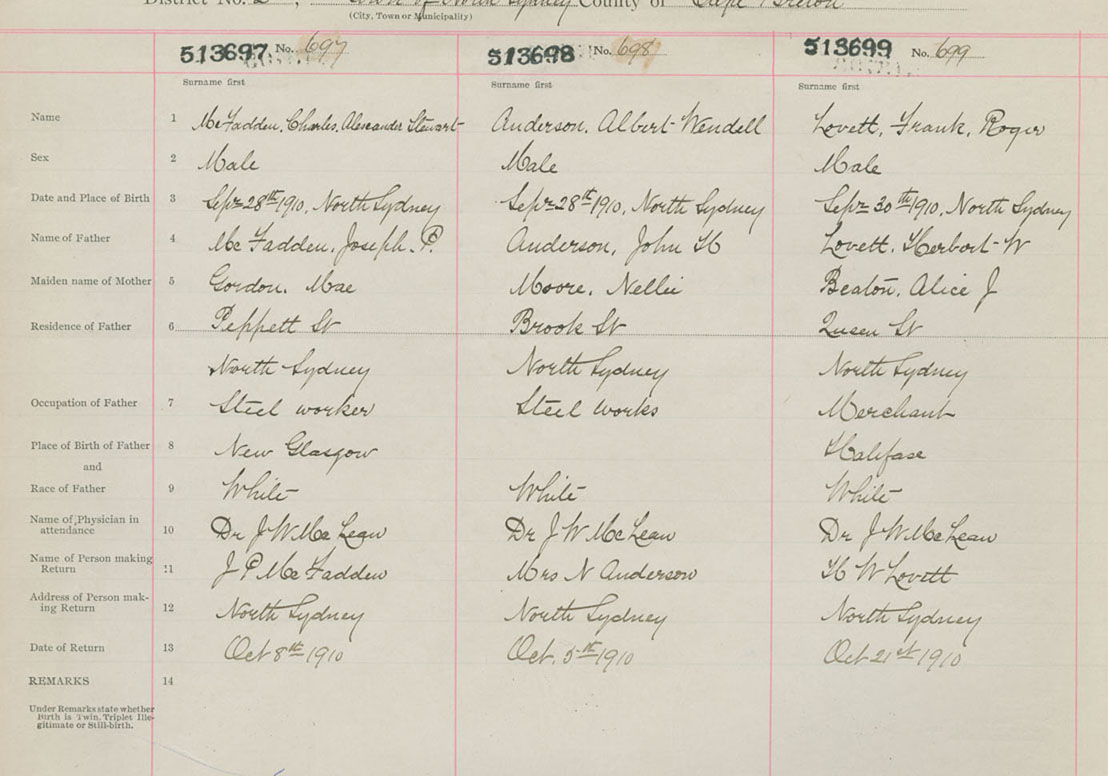 District No. 2, Town of North Sydney County of Cape Breton
(City, Town or Municipality)
513697 No. 697 513698 No. 698 513699 No. 699
Surname first Surname first Surname first
Name 1 McFadden, Charles, Alexander Stewart Anderson, Albert Wendell Lovett, Frank, Roger
Sex 2 Male Male Male
Date and Place of Birth 3 Sept 28th 1910, North Sydney Sept 28th 1910, North Sydney Sept 30th 1910, North Sydney
Name of Father 4 McFadden, Joseph. P. Anderson, John H Lovett, Herbert W
Maiden name of Mother 5 Gordon, Mae Moore, Nellie Beaton, Alice J
Residence of Father 6 Peppett St Brook St Queen St
North Sydney North Sydney North Sydney
Occupation of Father 7 Steel worker Steel works Merchant
Place of Birth of Father 8 New Glasgow Halifax
and
Race of Father 9 White White White
Name of Physician in
attendance 10 Dr J W McLean Dr J W McLean Dr J W McLean
Name of Person making
Return 11 J P McFadden Mrs N Anderson H W Lovett
Address of Person mak-
ing Return 12 North Sydney North Sydney North Sydney
Date of Return 13 Oct 8th 1910 Oct. 5th 1910 Oct 21st 1910
REMARKS 14
Under Remarks state whether
Birth is Twin, Triplet Ille-
gitimate or Still-birth.